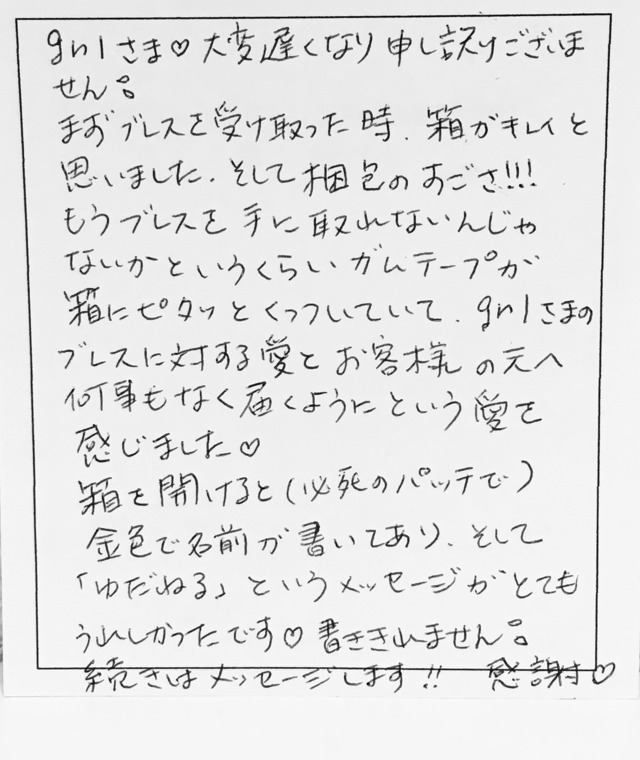 gnlさま♡大変遅くなり申し訳ございま
せん。
まずブレスを受け取った時、箱がキレイと
思いました。そして梱包のすごさ!!!
もうブレスを手に取れないんじゃ
ないかというくらいガムテープが
箱にピタッとくっついていて、gnlさまの
ブレスに対する愛とお客様の元へ
何事もなく届くようにという愛を
感じました♡
箱を開けると(必死のパッチで)
金色で名前が書いてあり、そして
「ゆだねる」というメッセージがとても
うれしかったです♡書ききれません。
続きはメッセージします!! 感謝♡